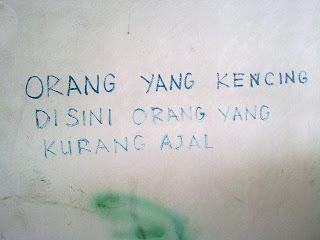 ORANG YANG KENCING
DISINI ORANG YANG
KURANG AJAL